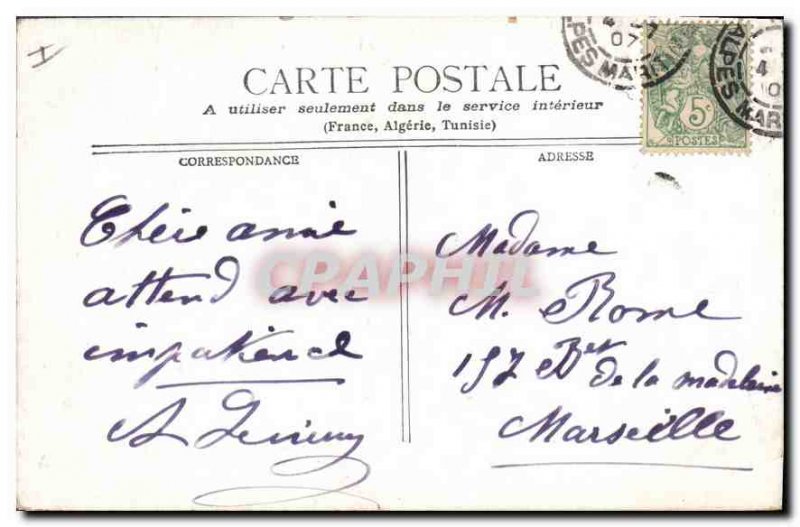 CARTE POSTALE
A utiliser seulement dans le service intérieur
(France, Algérie, Tunisie)
CORRESPONDANCE
Chère amie
attend avec
impatience
ADRESSE
Madame
M. Rome
157 Bd de la madeleine
Marseille
5c
POSTES
07
ALPES MAR
4
CPAPHIL